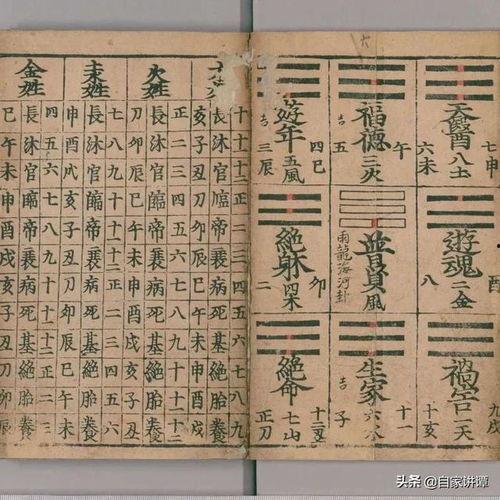 七申
天醫八土
六未
午
福德三火
吉五
四巳
遊年五風
吉三辰
酉
遊魂二金
八
普賢風
雨龍海河卦
卯
絕躰四木
二
九戌
禍害一天
十亥
十一
生家六水
吉子
十二丑
絕命七山
正刀
十十一十二正二三四五六七八九
長沐官臨帝衰病死基絕胎養
亥子丑刀卯辰巳午未申酉戌
火姓
正二三四五六七八九十十一十二
長沐官臨帝衰病死基絕胎養
刀卯辰巳午未申酉戌亥子丑
木姓
七八九十十一十二正二三四五六
長沐官臨帝衰病死基絕胎養
申酉戌亥子丑刀卯辰巳午未
金姓
四五六七八九十十一十二正二三
長沐官臨帝衰病死基絕胎養
巳午未申酉戌亥子丑刀卯辰
头条 @自家讲谭